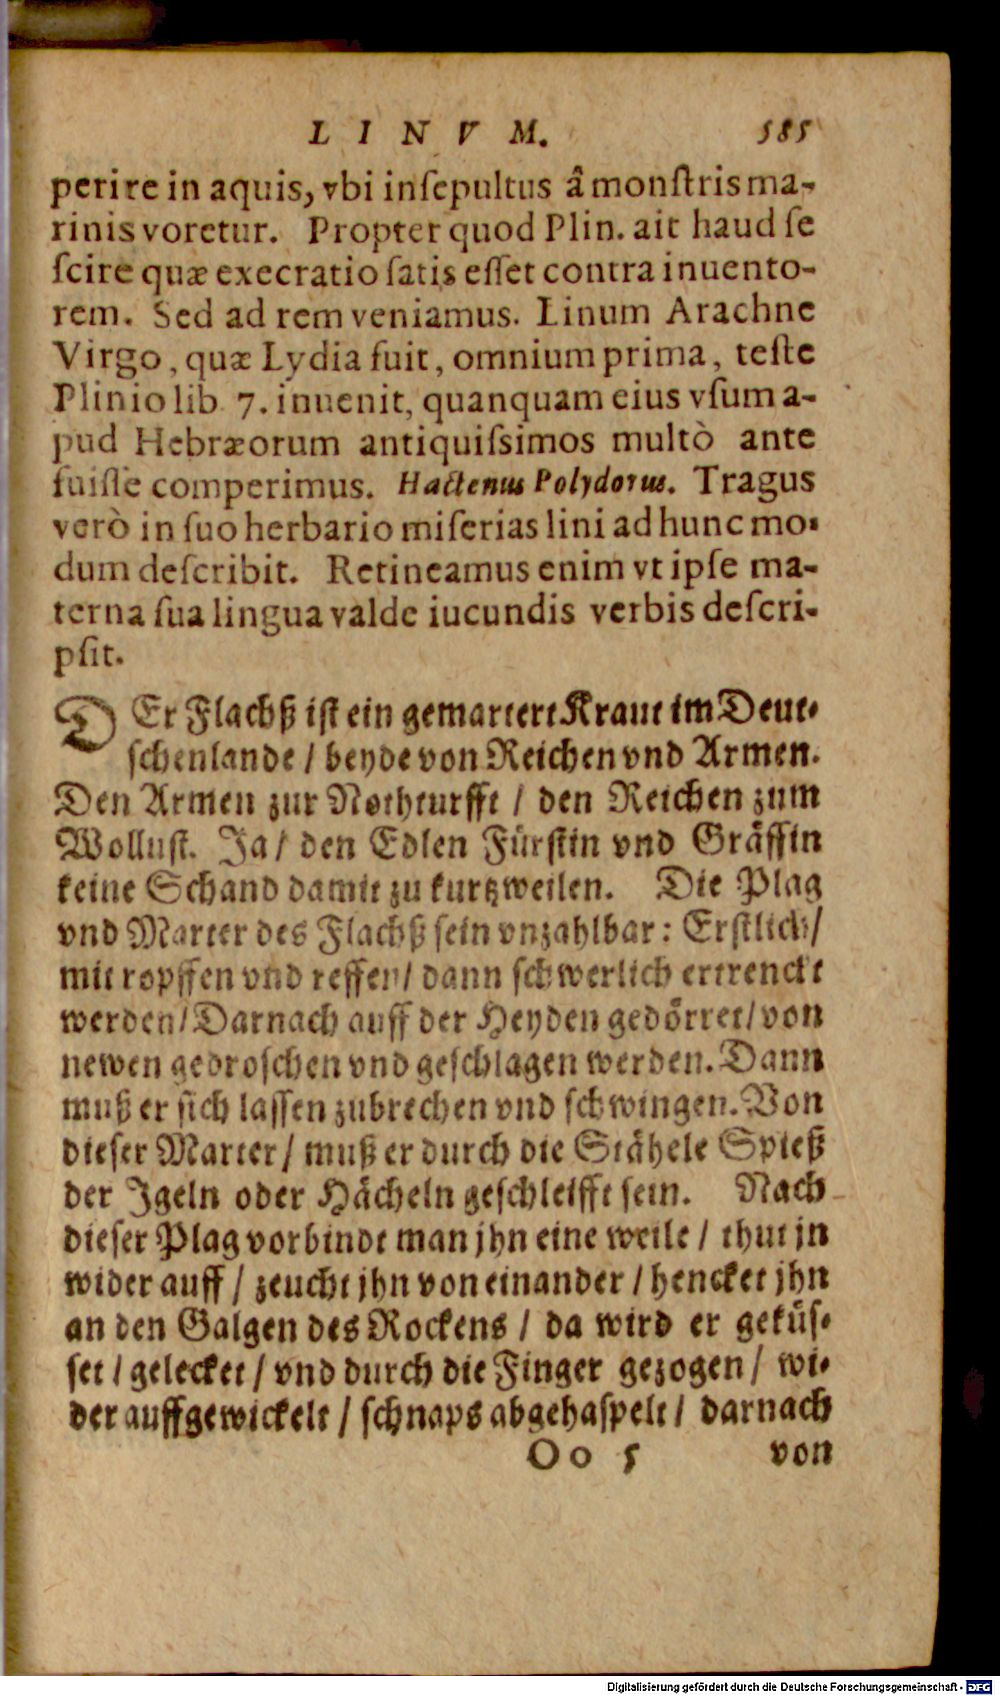 LINVM. 585
perire in aquis, vbi insepultus â monstris ma-
rinis voretur. Propter quod Plin. ait haud se
scire quæ execratio satis esset contra inuento-
rem. Sed ad rem veniamus. Linum Arachne
Virgo, quæ Lydia fuit, omnium prima, teste
Plinio lib 7. inuenit, quanquam eius vsum a-
pud Hebræorum antiquissimos multò ante
fuisse comperimus. Hactenus Polydorus. Tragus
verò in suo herbario miserias lini ad hunc mo-
dum describit. Retineamus enim vt ipse ma-
terna sua lingua valde iucundis verbis descri-
psit.
DEr Flachß ist ein gemartert Kraut im Deut-
schenlande / beyde von Reichen vnd Armen.
Den Armen zur Nothturfft / den Reichen zum
Wollust. Ja / den Edlen Fürstin vnd Gräffin
keine Schand damit zu kurtzweilen. Die Plag
vnd Marter des Flachß sein vnzahlbar: Erstlich /
mit ropffen vnd reffen / dann schwerlich ertrenckt
werden / Darnach auff der Heyden gedörret / von
newen gedroschen vnd geschlagen werden. Dann
muß er sich lassen zubrechen vnd schwingen. Von
dieser Marter / muß er durch die Stähele Spieß
der Igeln oder Hächeln geschleifft sein. Nach
dieser Plag vorbindt man jhn eine weile / thut jn
wider auff / zeucht jhn von einander / hencket jhn
an den Galgen des Rockens / da wird er geküs-
set / gelecket / vnd durch die Finger gezogen / wi-
der auffgewickelt / schnaps abgehaspelt / darnach
Oo 5 von
Digitalisierung gefördert durch die Deutsche Forschungsgemeinschaft - DFG